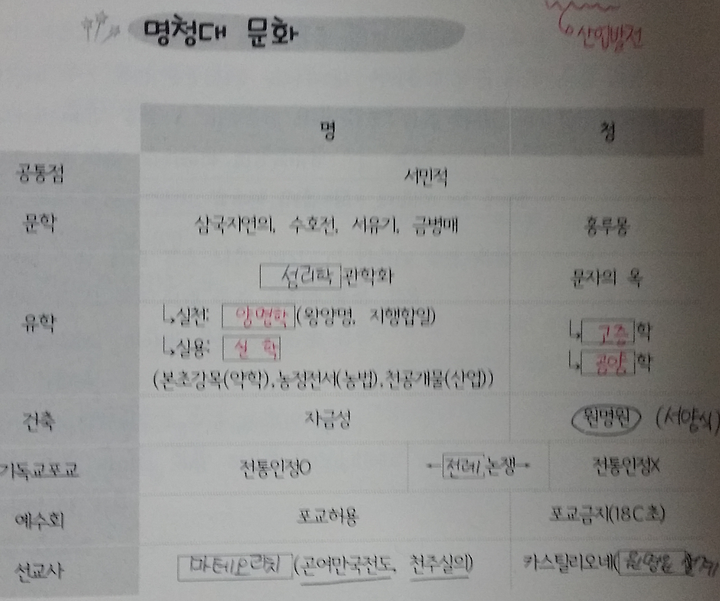 명청대 문화
산업발전
명 청
공통점 서민적
문학 삼국지연의, 수호전, 서유기, 금병매 홍루몽
성리학 관학화 문자의 옥
유학 ↳실천: 양명학 (왕양명, 지행합일) ↳고증학
↳실용: 실학 ↳공양학
(본초강목(약학), 농정전서(농법), 천공개물(산업))
건축 자금성 원명원 (서양식)
기독교포교 전통인정O ←전례논쟁→ 전통인정X
예수회 포교허용 포교금지(18C초)
선교사 마테오리치 (곤여만국전도, 천주실의) 카스틸리오네(원명원 설계